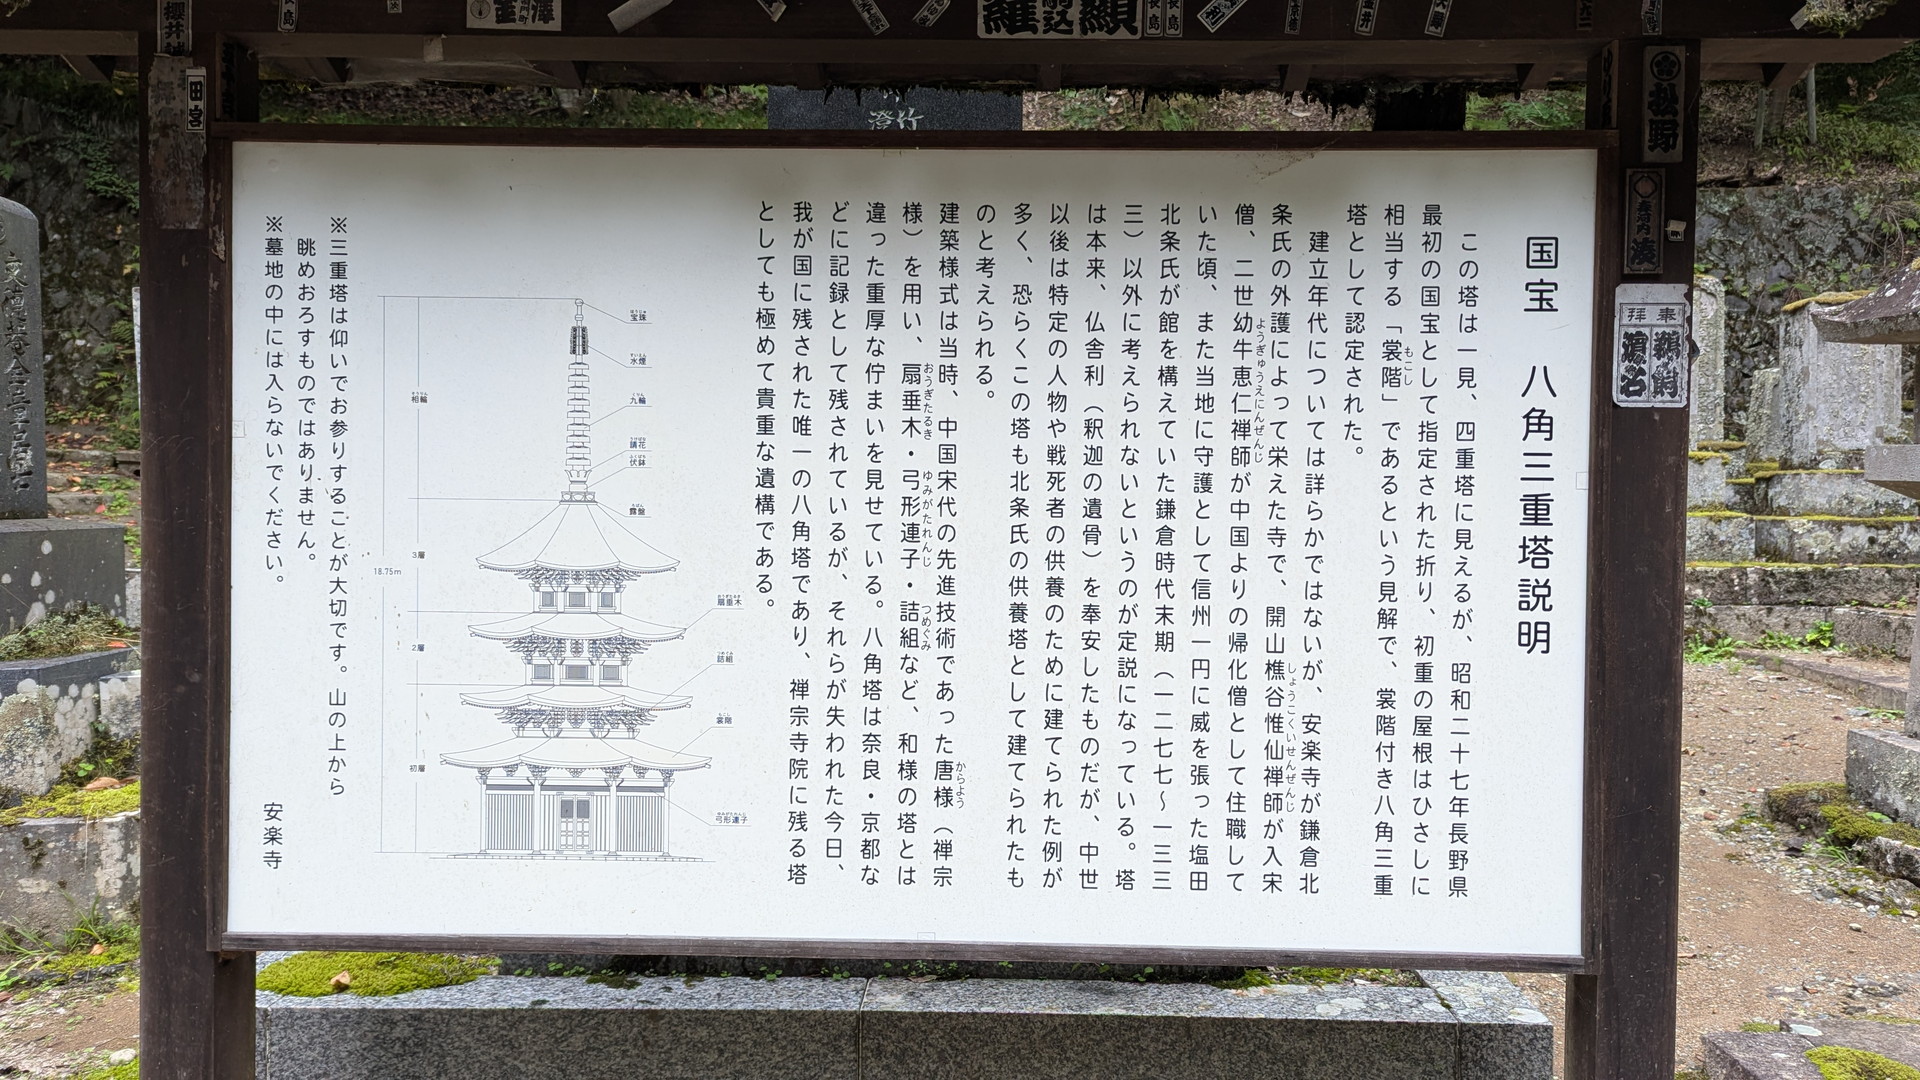 国宝　八角三重塔説明
この塔は一見、四重塔に見えるが、昭和二十七年長野県
最初の国宝として指定された折り、初重の屋根はひさしに
相当する「裳階」であるという見解で、裳階付き八角三重
もこし
塔として認定された。
建立年代については詳らかではないが、安楽寺が鎌倉北
条氏の外護によって栄えた寺で、開山樵谷惟仙禅師が入宋
しょうこくいせんぜんじ
僧、二世幼牛恵仁禅師が中国よりの帰化僧として住職して
ようぎゅうえにんぜんじ
いた頃、また当地に守護として信州一円に威を張った塩田
北条氏が館を構えていた鎌倉時代末期（一二七七〜一三三
三）以外に考えられないというのが定説になっている。塔
は本来、仏舎利（釈迦の遺骨）を奉安したものだが、中世
以後は特定の人物や戦死者の供養のために建てられた例が
多く、恐らくこの塔も北条氏の供養塔として建てられたも
のと考えられる。
建築様式は当時、中国宋代の先進技術であった唐様（禅宗
からよう
様）を用い、扇垂木・弓形連子・詰組など、和様の塔とは
おうぎたるき　ゆみがたれんじ　つめぐみ
違った重厚な佇まいを見せている。八角塔は奈良・京都な
どに記録として残されているが、それらが失われた今日、
我が国に残された唯一の八角塔であり、禅宗寺院に残る塔
としても極めて貴重な遺構である。
宝珠
水煙
九輪
請花
伏鉢
露盤
扇垂木
詰組
裳階
弓形連子
相輪
3層
18.75m
2層
初層
※三重塔は仰いでお参りすることが大切です。山の上から
眺めおろすものではありません。
※墓地の中には入らないでください。
安楽寺
松野
湊
奉
拝
田宮
櫻井
長島
竹
澄